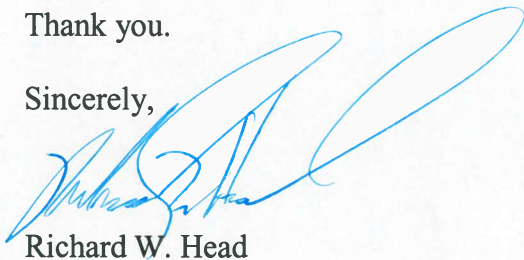 Thank you.
Sincerely,
Richard W. Head